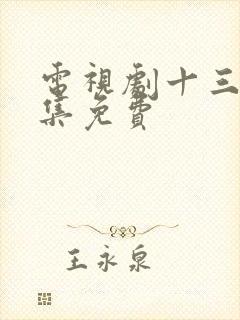 電視劇十三
集免費
王永泉